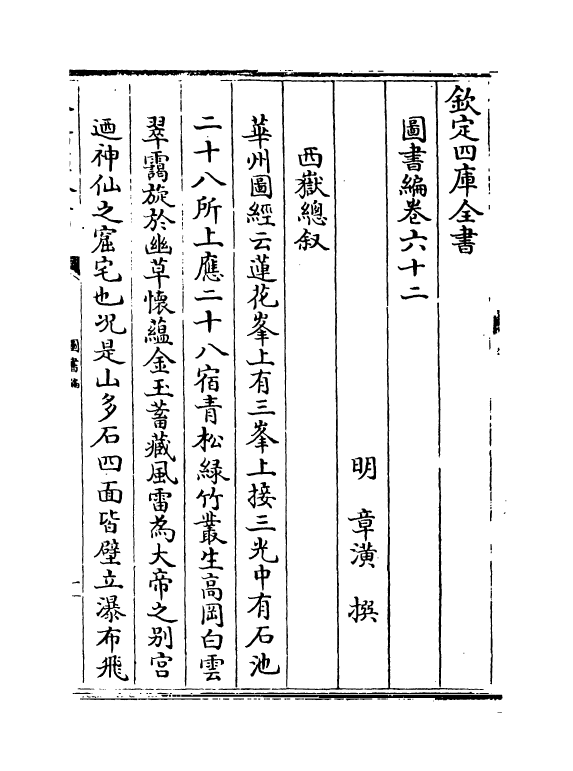 欽定四庫全書
圖書編卷六十二
明 章潢 撰
西嶽總叙
華州圖經云蓮花峯上有三峯上接三光中有石池
二十八所上應二十八宿青松緑竹叢生高岡白雲
翠靄旋於幽草懐藴金玉蓄藏風雷為大帝之别宫
迺神仙之窟宅也况是山多石四面皆壁立瀑布飛
圖書編